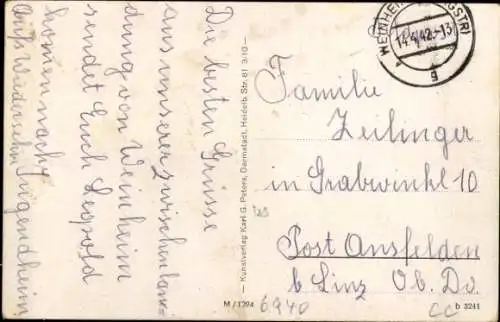 Die besten Grüsse
aus unserer zwischenlan-
dung von Weinheim
sendet Euch Leopold
komen nach
Auf Wiedersehn Jugendheim
— Kunstverlag Karl G. Peters, Darmstadt, Heidelb Str. 81 3/10 —
WEINHEIM (BERGSTR)
14.4.42.-13
g
Familie
Zeilinger
in Grabwinkl 10
Post Ansfelden
b Linz Ob. Do.
M/1294
6940
CC
b 3241